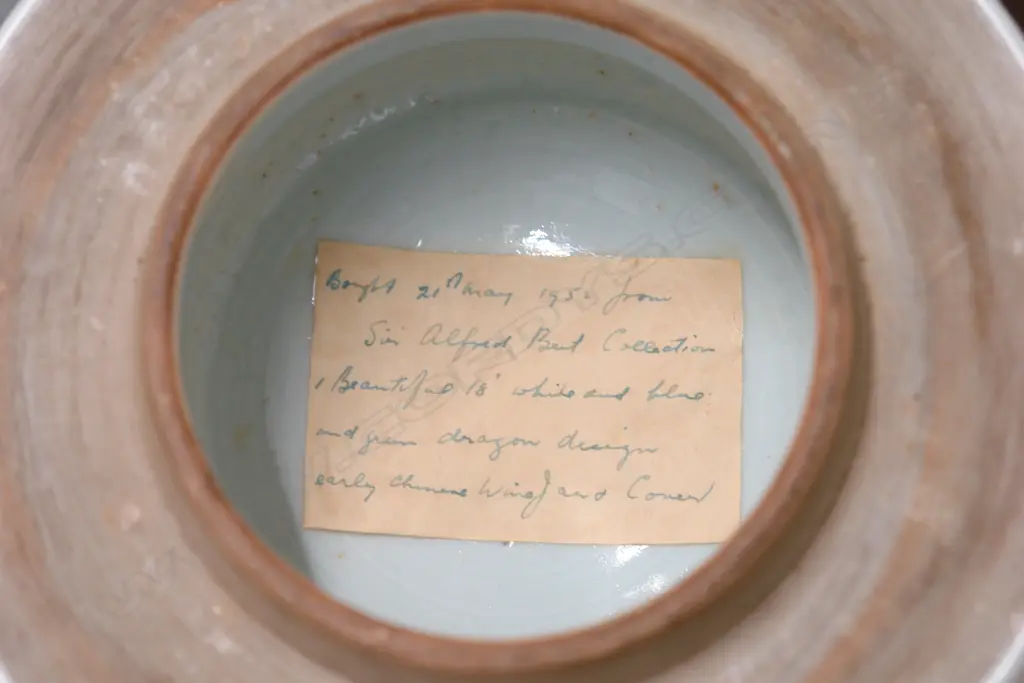 Bought 21st May 195 from
Sir Alfred Beit Collection
1 Beautiful 18" white and blue
and green dragon design
early Chinese and Cover